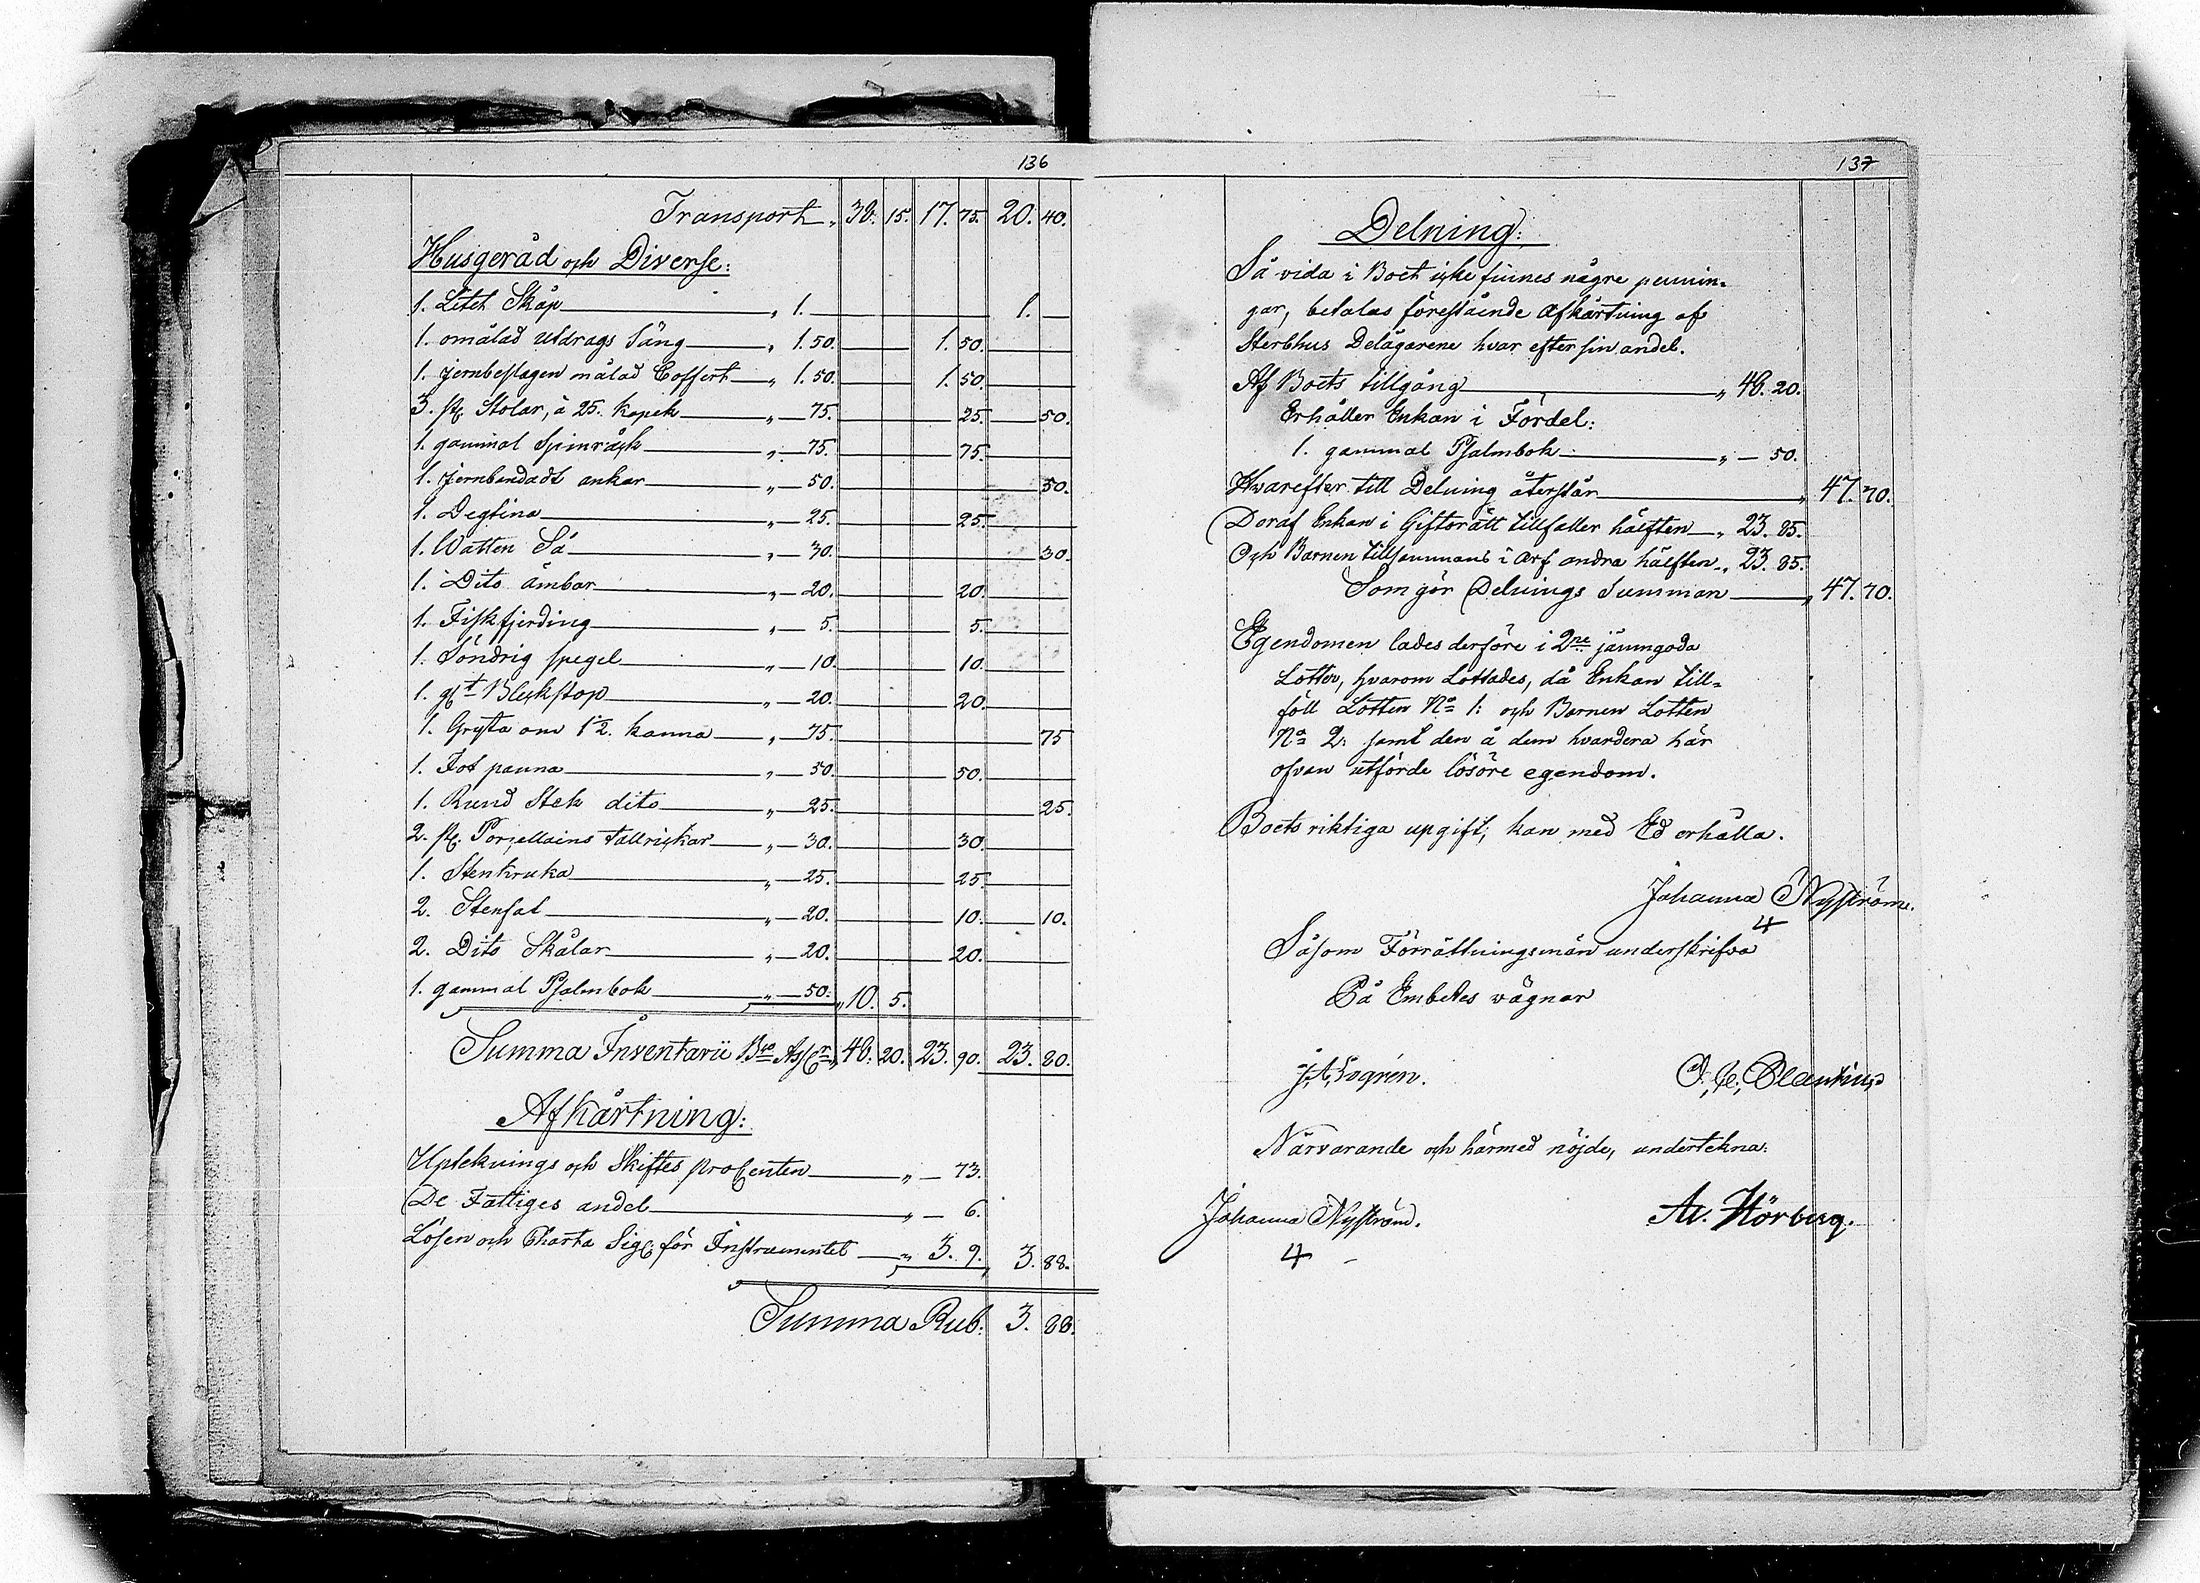 136
Transport " 38. 15. 17. 75. 20. 40.
Husgeråd och Diverse:
1. Litet Skåp " 1. 1.
1. omålad utdrags Säng " 1. 50. 1. 50.
1. jernbeslagen målad Coffert " 1. 50. 1. 50.
3. st. Stolar, à 25. kopek " 75. 25. 50.
1. gammal Spinråck " 75. 75.
1. jernbandadt ankar " 50. 50.
1. Degtina " 25. 25.
1. Watten Så " 30. 30.
1. Dito ämbar " 20. 20.
1. Fiskfjerding " 5. 5.
1. Söndrig spegel " 10. 10.
1. glt Bleckstop " 20. 20.
1. Gryta om 1 1/2. kanna " 75. 75
1. Fot panna " 50. 50.
1. Rund Stek dito " 25. 25.
2. st. Porcellains tallrickar " 30. 30.
1. Stenkruka " 25. 25.
2. Stenfat " 20. 10. 10.
2. Dito Skålar " 20. 20.
1. gammal Psalmbok " 50. " 10. 5.
Summa Inventarii Bco Assgr " 48. 20. 23. 90. 23. 80.
Afkårtning:
Uptecknings och Skiftes proCenten " 73.
De Fattiges andel " 6.
Lösen och Charta Sig: för Instrumentet " 3. 9. " 3. 88.
Summa Rub. 3. 88.
137
Delning:
Så vida i Boet icke finnes några pennin-
gar, betalas förestående Afkårtning af
Sterbhus Delägarene hvar efter sin andel.
Af Boets tillgång " 48. 20.
Erhåller Enkan i Fördel:
1. gammal Psalmbok " 50.
Hvarefter till Delning återstår " 47. 70.
Deraf Enkan i Giftorätt tillfaller hälften " 23. 85.
Och Barnen tillsammans i arf andra hälften " 23. 85.
Som gör Delnings Summan " 47. 70.
Egendomen lades derföre i 2ne jämngoda
Lotter, hvarom Lottades, då Enkan till-
föll Lotten No 1: och Barnen Lotten
No 2: samt den å dem hvardera här
ofvan utförde lösöre egendom.
Boets riktiga upgift, kan med Ed erhålla.
Johanna Nyström.
Såsom Förrättningsmän underskrifva
På Embetes vägnar
Närvarande och härmed nöjde, undertekna:
Johanna Nyström. Ar. Hörberg.